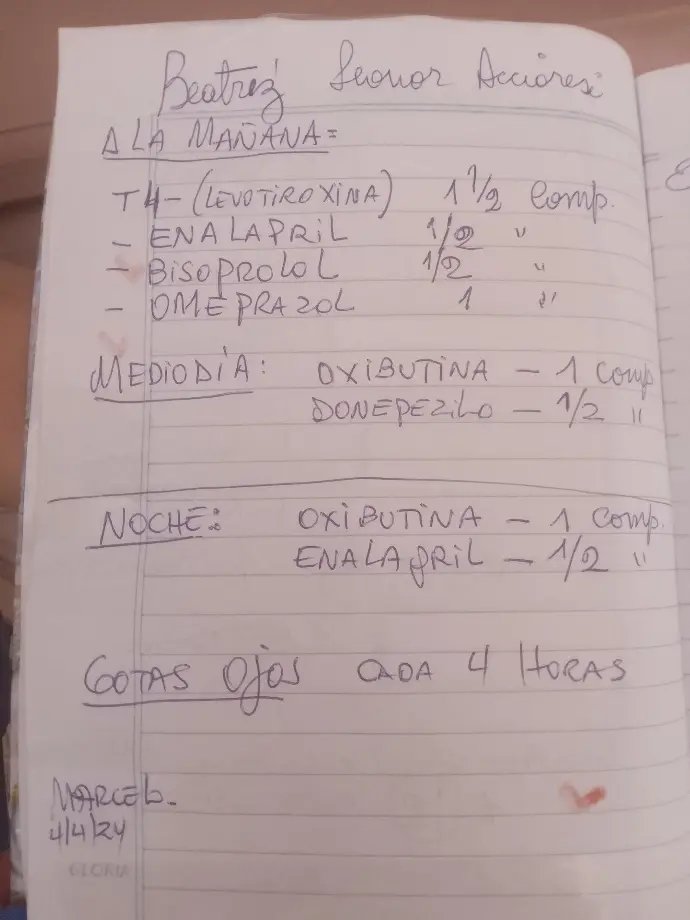 Beatriz Leonor Acciaresi
A LA MAÑANA=
T4-(LEVOTIROXINA) 1 1/2 Comp.
- ENALAPRIL 1/2 "
- BISOPROLOL 1/2 "
- OMEPRAZOL 1 "
MEDIODÍA: OXIBUTINA - 1 Comp
DONEPEZILO - 1/2 "
NOCHE: OXIBUTINA - 1 Comp.
ENALAPRIL - 1/2 "
GOTAS OJOS CADA 4 HORAS
4/4/24
GLORIA